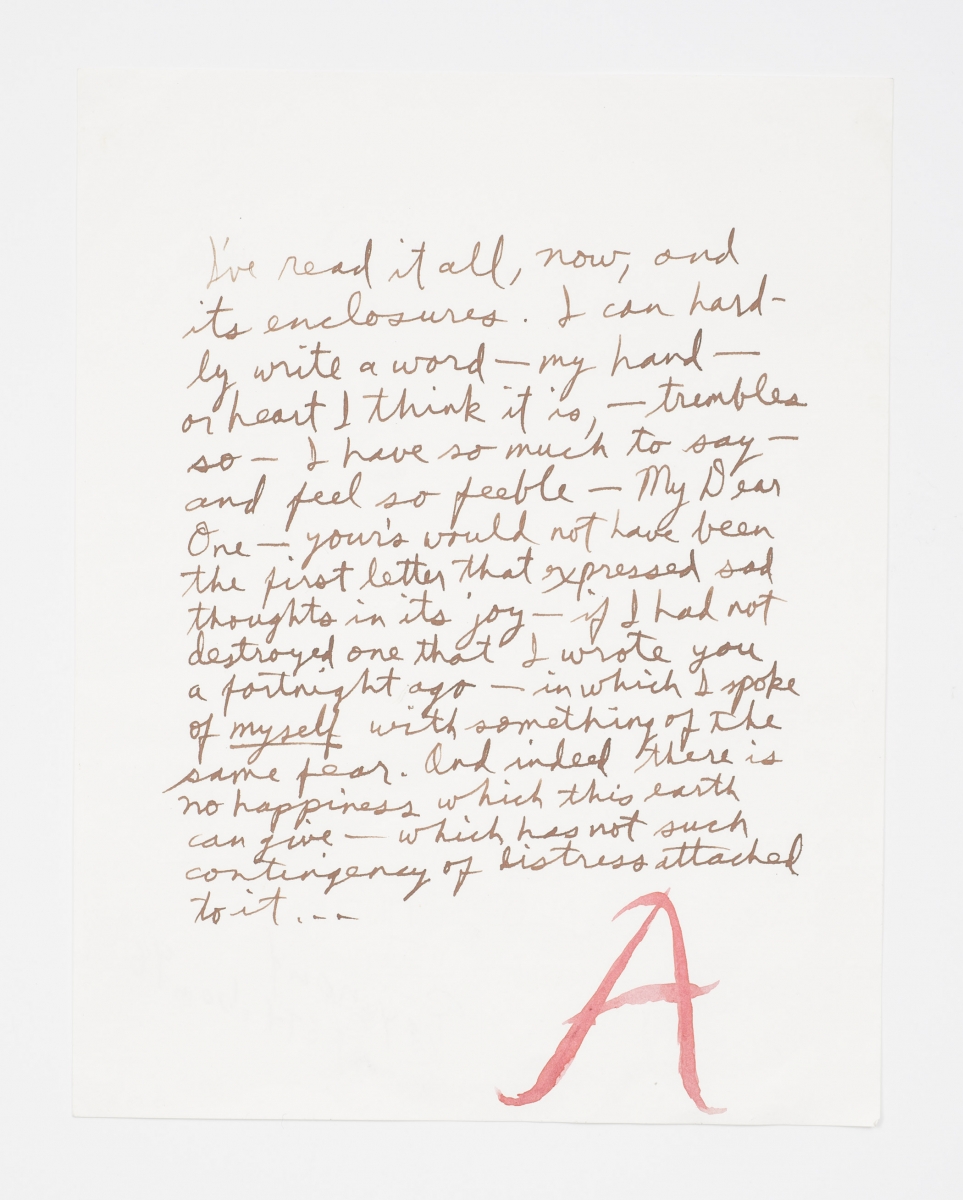 I've read it all, now, and
its enclosures. I can hard-
ly write a word — my hand —
or heart I think it is, — trembles
so — I have so much to say —
and feel so feeble — My Dear
One — your's would not have been
the first letter that expressed sad
thoughts in its' joy — if I had not
destroyed one that I wrote you
a fortnight ago — in which I spoke
of myself with something of the
same fear. And indeed there is
no happiness which this earth
can give — which has not such
contingency of distress attached
to it...
A